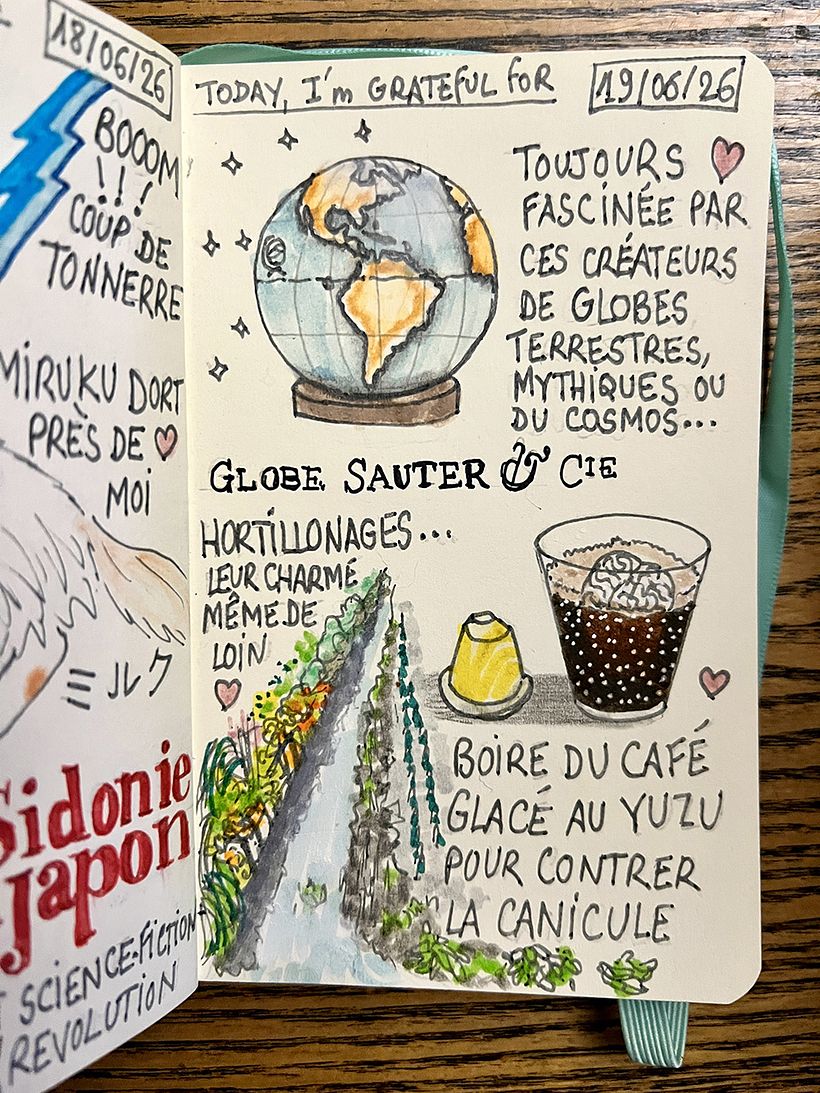 18/06/26
BOOOM
!!!
COUP DE
TONNERRE
MIRUKU DORT
PRÈS DE
MOI
ミルク
Sidonie
Japon
SCIENCE-FICTION
REVOLUTION
TODAY, I'm GRATEFUL FOR
19/06/26
TOUJOURS
FASCINÉE PAR
CES CRÉATEURS
DE GLOBES
TERRESTRES,
MYTHIQUES OU
DU COSMOS...
GLOBE SAUTER & CIE
HORTILLONAGES...
LEUR CHARME
MÊME DE
LOIN
BOIRE DU CAFÉ
GLACÉ AU YUZU
POUR CONTRER
LA CANICULE